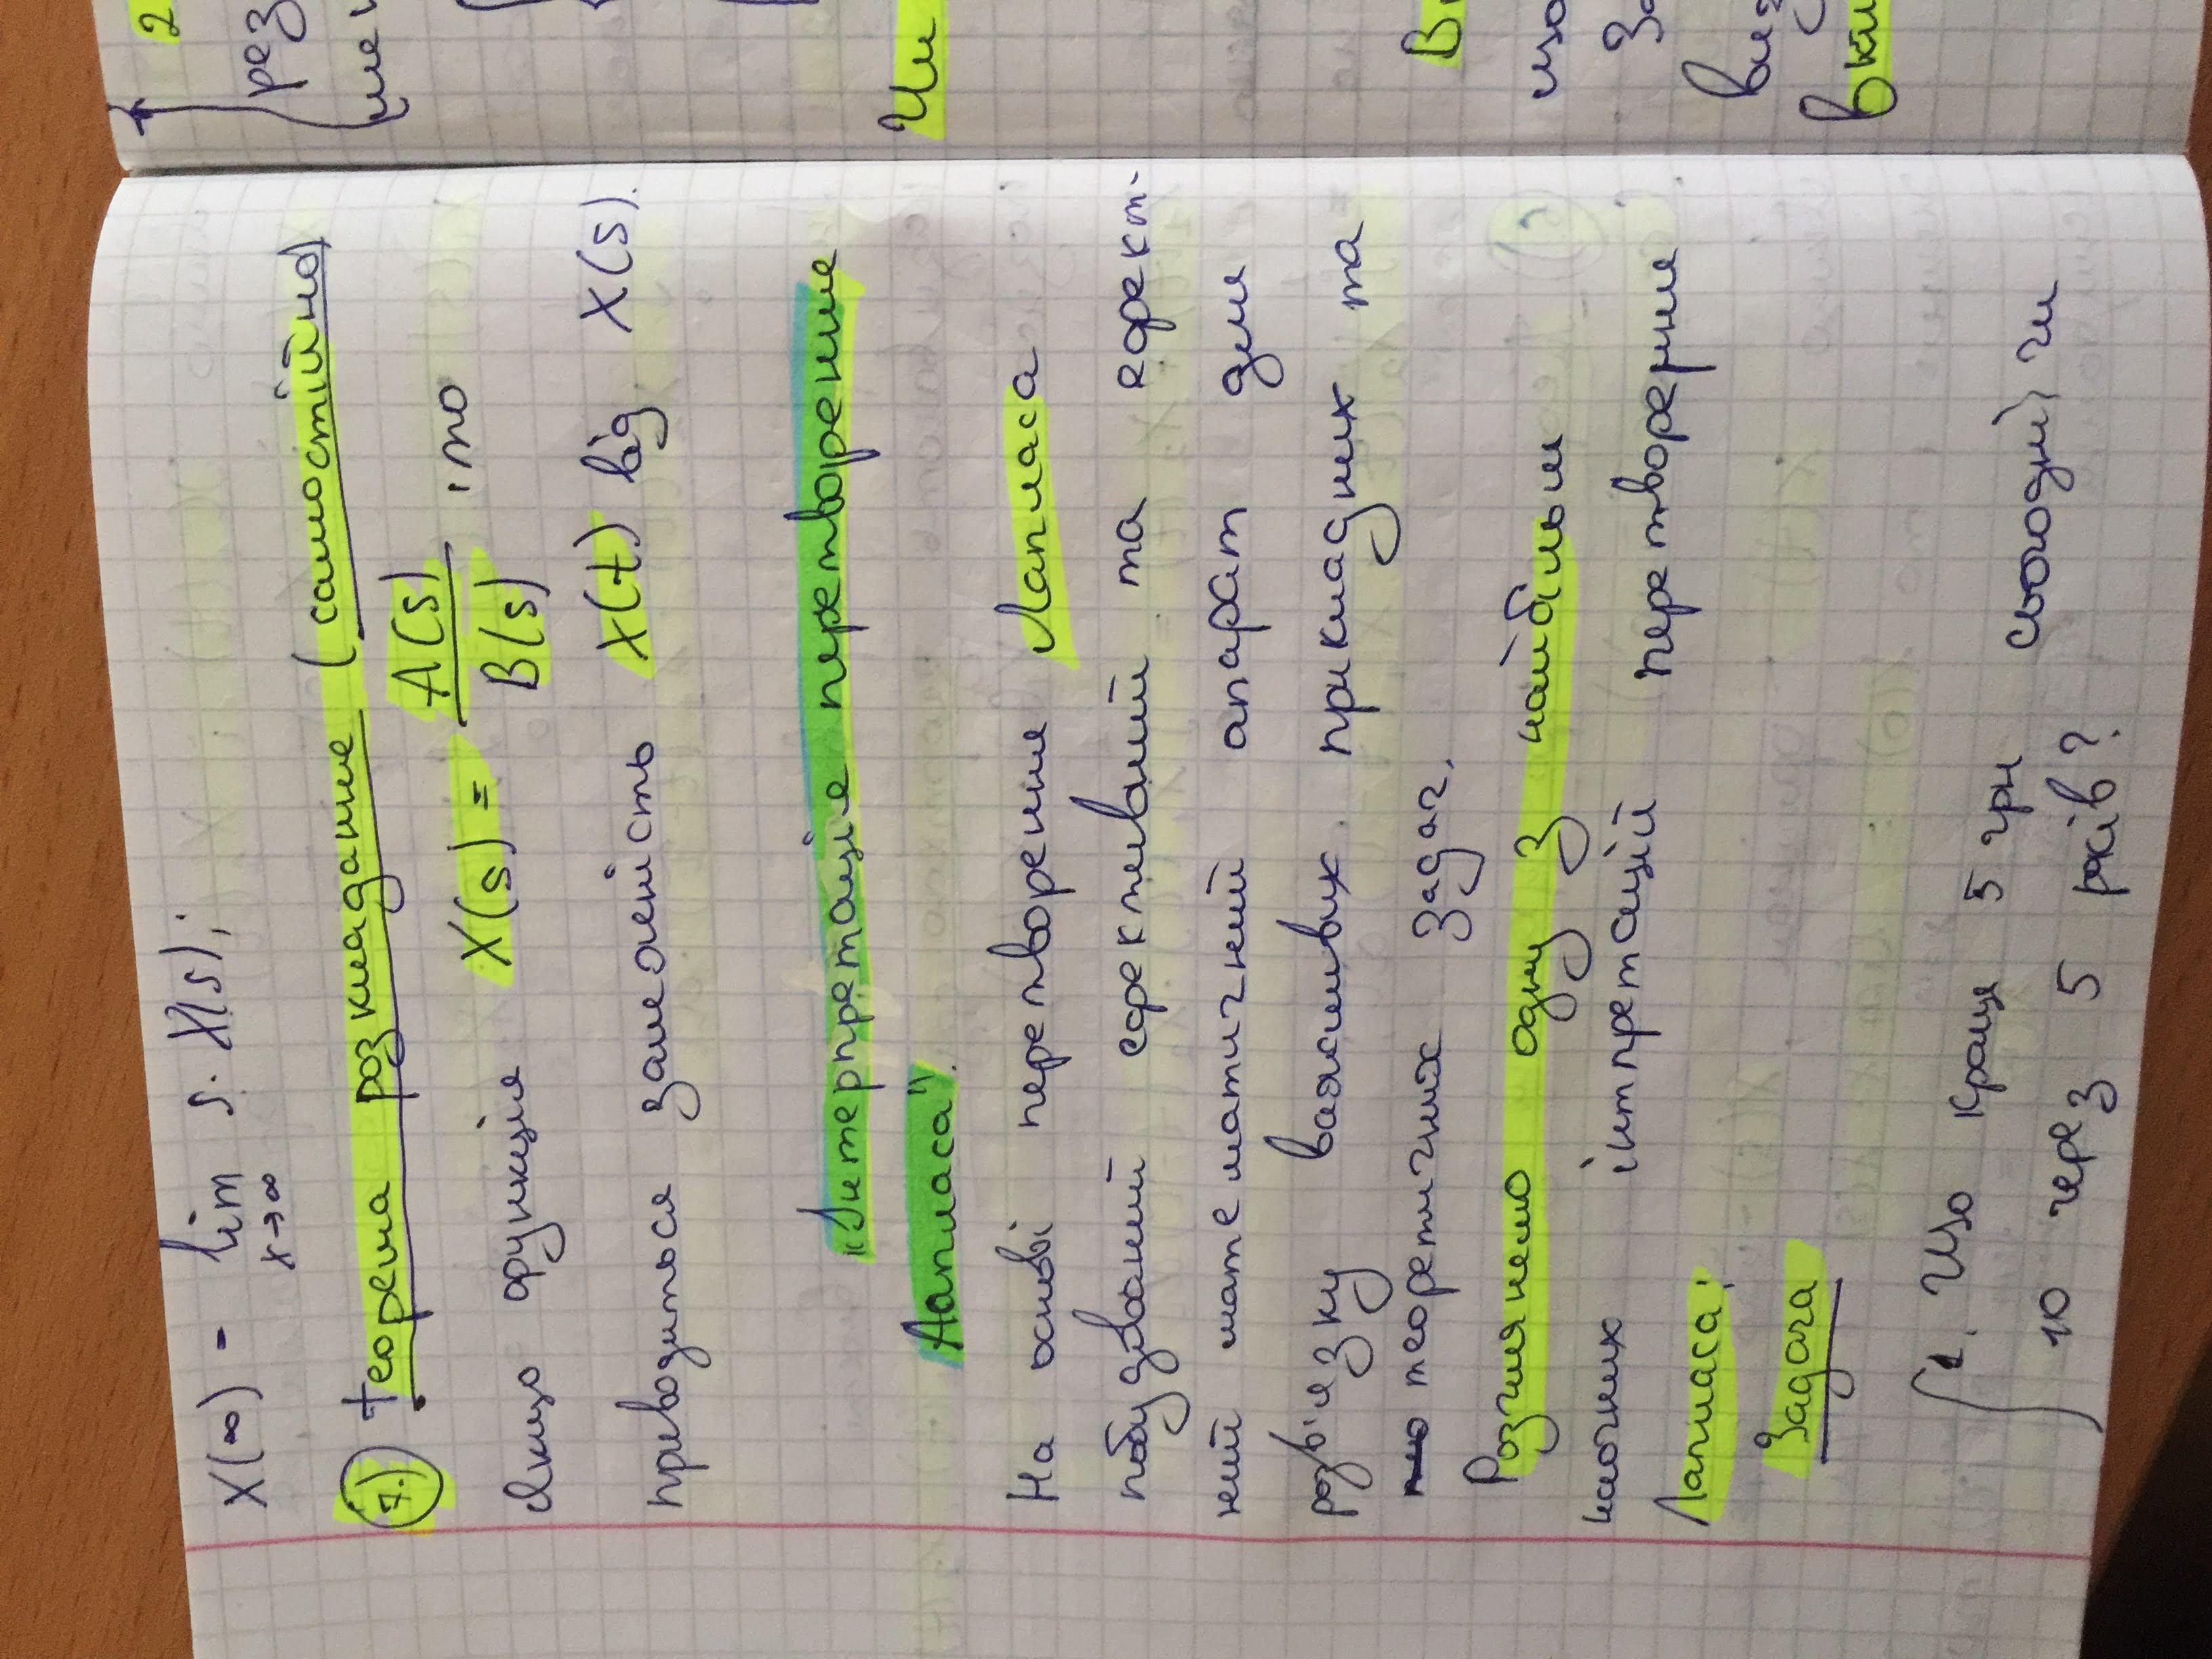 X(∞) = lim s·X(s);
x→∞
7.) Теорема розкладання (самостійно)
Якщо функція X(s) = A(s)/B(s), то
приводиться залежність X(t) від X(s).
"Інтерпретація перетворення
Лапласа".
На основі перетворення Лапласа
побудований ефективний та ефект-
ний математичний апарат для
розв'язку важливих прикладних та
теоретичних задач.
Розглянемо одну з найбільш
наочних інтпретацій перетворення
Лапласа:
Задача
1. Що краще 5 грн сьогодні, чи
10 через 5 років?
2
рез
Чи
що